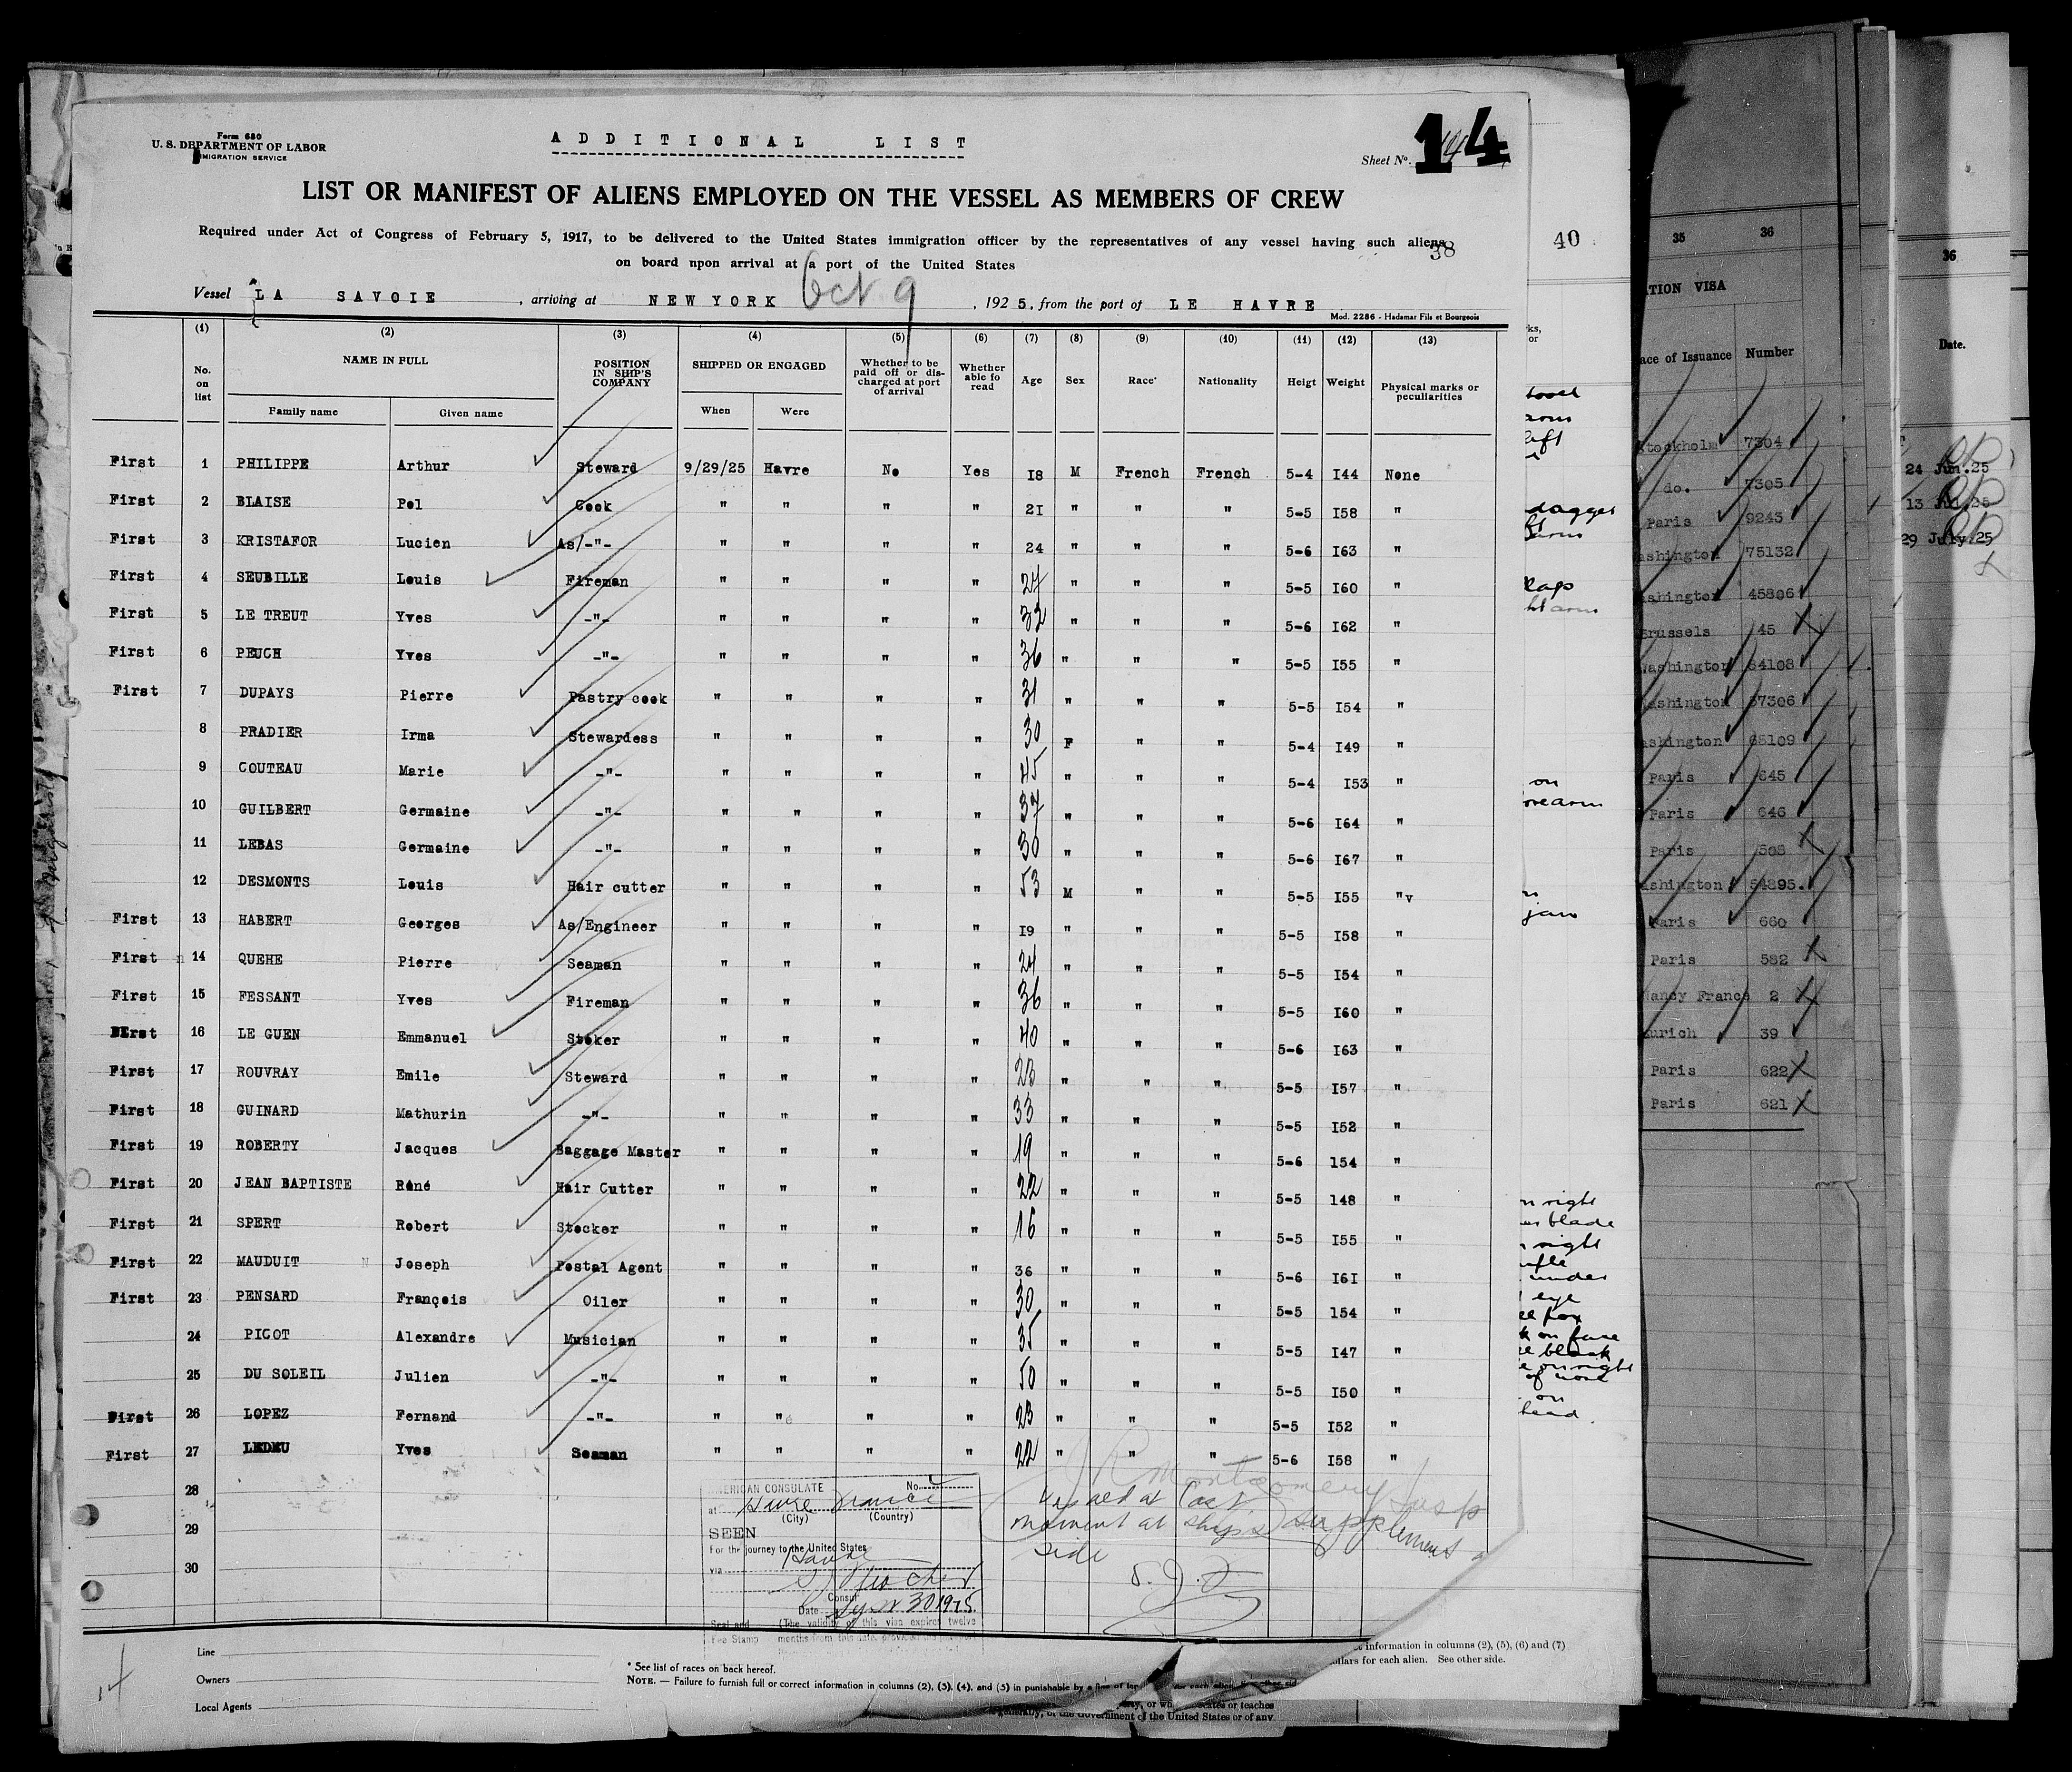 Form 680
U. S. DEPARTMENT OF LABOR
IMMIGRATION SERVICE
ADDITIONAL LIST
Sheet No. 14
LIST OR MANIFEST OF ALIENS EMPLOYED ON THE VESSEL AS MEMBERS OF CREW
Required under Act of Congress of February 5, 1917, to be delivered to the United States immigration officer by the representatives of any vessel having such aliens
38
40
on board upon arrival at a port of the United States
Vessel LA SAVOIE, arriving at NEW YORK Oct 9, 1925, from the port of LE HAVRE
Mod. 2286 - Hadamar Fils et Bourgeois
(1) (2) (3) (4) (5) (6) (7) (8) (9) (10) (11) (12) (13)
No. on list NAME IN FULL POSITION IN SHIP'S COMPANY SHIPPED OR ENGAGED Whether to be paid off or discharged at port of arrival Whether able fo read Age Sex Race* Nationality Heigt Weight Physical marks or peculiarities
Family name Given name When Were
First 1 PHILIPPE Arthur Steward 9/29/25 Havre No Yes 18 M French French 5-4 144 None
First 2 BLAISE Pol Cook " " " " 21 " " " 5-5 158 "
First 3 KRISTAFOR Lucien As/-"- " " " " 24 " " " 5-6 163 "
First 4 SEUBILLE Louis Fireman " " " " 27 " " " 5-5 160 "
First 5 LE TREUT Yves -"- " " " " 32 " " " 5-6 162 "
First 6 PEUCH Yves -"- " " " " 36 " " " 5-5 155 "
First 7 DUPAYS Pierre Pastry cook " " " " 31 " " " 5-5 154 "
8 PRADIER Irma Stewardess " " " " 30 F " " 5-4 149 "
9 COUTEAU Marie -"- " " " " 45 " " " 5-4 153 "
10 GUILBERT Germaine -"- " " " " 37 " " " 5-6 164 "
11 LEBAS Germaine -"- " " " " 30 " " " 5-6 167 "
12 DESMONTS Louis Hair cutter " " " " 53 M " " 5-5 155 "v
First 13 HABERT Georges As/Engineer " " " " 19 " " " 5-5 158 "
First 14 QUEHE Pierre Seaman " " " " 24 " " " 5-5 154 "
First 15 FESSANT Yves Fireman " " " " 36 " " " 5-5 160 "
First 16 LE GUEN Emmanuel Stoker " " " " 40 " " " 5-6 163 "
First 17 ROUVRAY Emile Steward " " " " 23 " " " 5-5 157 "
First 18 GUINARD Mathurin -"- " " " " 33 " " " 5-5 152 "
First 19 ROBERTY Jacques Baggage Master " " " " 19 " " " 5-6 154 "
First 20 JEAN BAPTISTE Réné Hair Cutter " " " " 22 " " " 5-5 148 "
First 21 SPERT Robert Stocker " " " " 16 " " " 5-5 155 "
First 22 MAUDUIT Joseph Postal Agent " " " " 36 " " " 5-6 161 "
First 23 PENSARD François Oiler " " " " 30 " " " 5-5 154 "
24 PICOT Alexandre Musician " " " " 35 " " " 5-5 147 "
25 DU SOLEIL Julien -"- " " " " 50 " " " 5-5 150 "
First 26 LOPEZ Fernand -"- " " " " 23 " " " 5-5 152 "
First 27 LEDEU Yves Seaman " " " " 22 " " " 5-6 158 "
28
29
30
AMERICAN CONSULATE No.
at Havre France
(City) (Country)
SEEN
For the journey to the United States
via Havre
Consul
Date Sept 30 1925
Seal and Fee Stamp
(The validity of this visa expires twelve months from this date
J R Montgomery Insp
Visaed at last
moment at ship's
side
Supplement
Line
Owners
Local Agents
* See list of races on back hereof.
NOTE. — Failure to furnish full or correct information in columns (2), (3), (4), and (5) in punishable by a fine of
14
information in columns (2), (5), (6) and (7)
dollars for each alien. See other side.
generally, of the Government of the United States or of any
dagger
on
right
blade
right
under
eye
on face
black
on right
of nose
on
head
35 36
VISA
Place of Issuance Number
Stockholm 7304
do. 7305
Paris 9243
Washington 75132
Washington 45806
Brussels 45
Washington 64108
Washington 37306
Washington 65109
Paris 645
Paris 646
Paris 503
Washington 54895.
Paris 660
Paris 582
Nancy France 2
Zurich 39
Paris 622
Paris 621
36
Date.
24 Jun.25
13 Jul.25
29 July.25